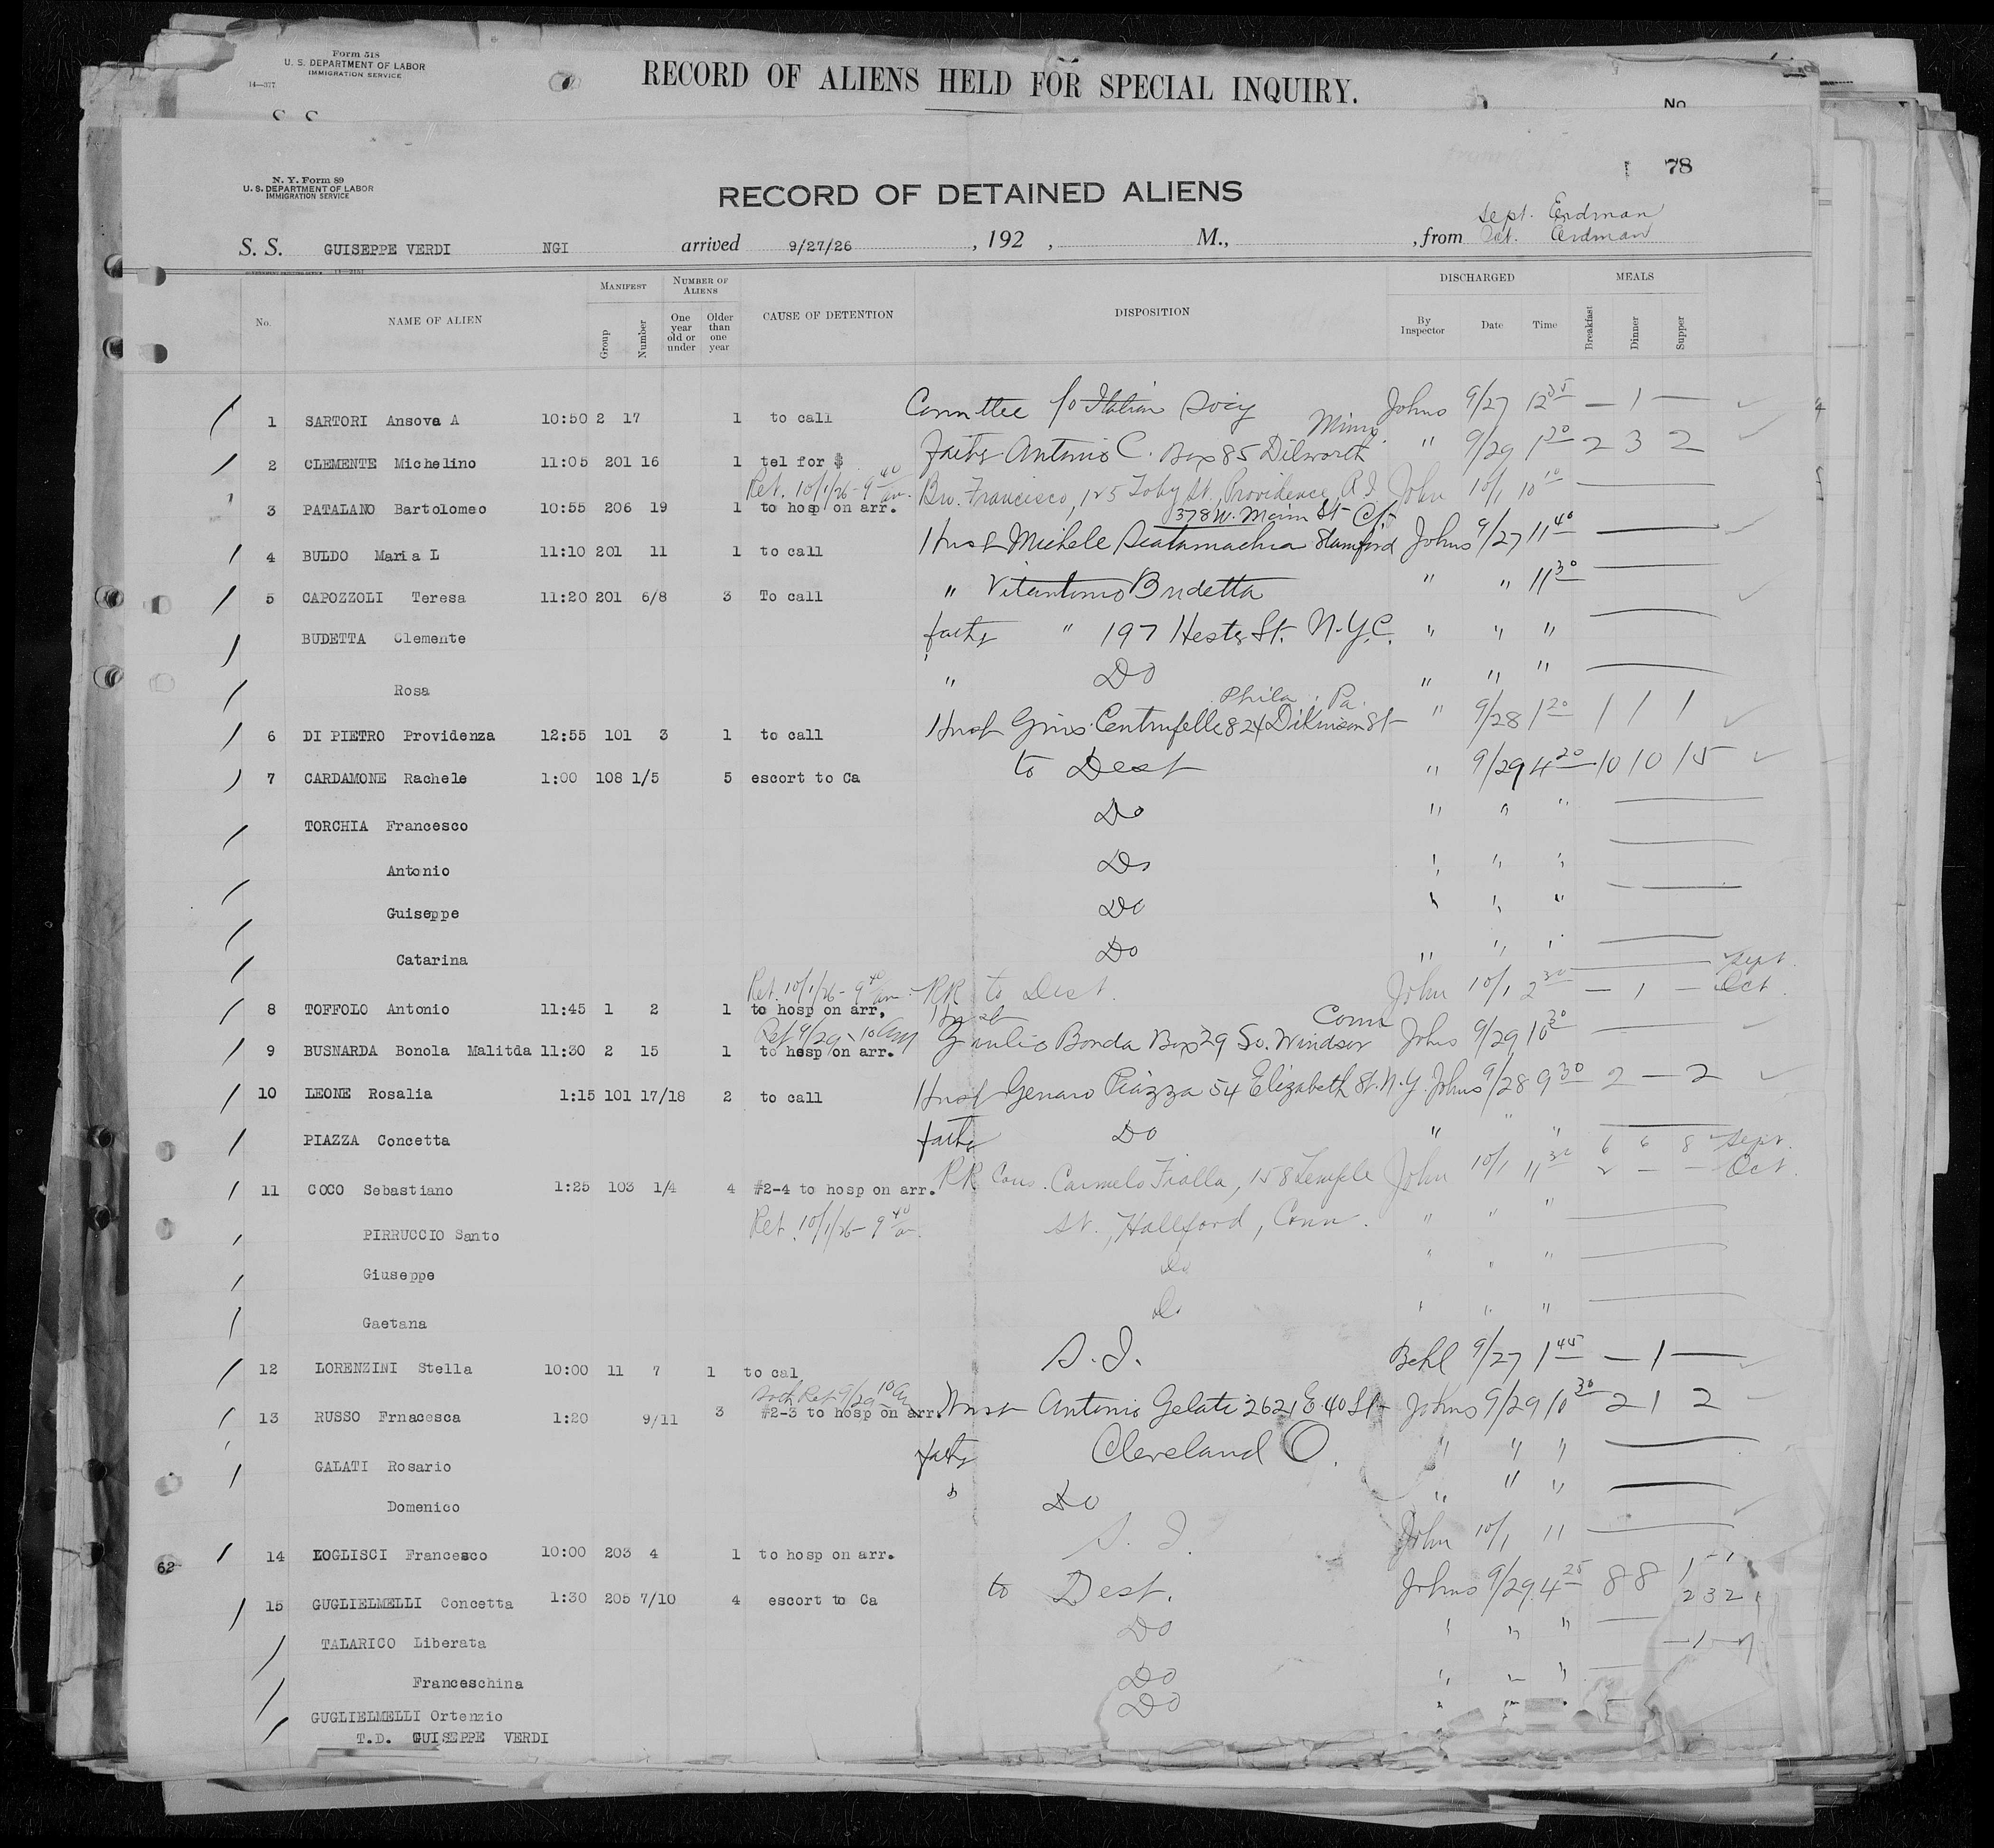 Form 518
U. S. DEPARTMENT OF LABOR
IMMIGRATION SERVICE
14—377
RECORD OF ALIENS HELD FOR SPECIAL INQUIRY.
No.
78
N. Y. Form 89
U. S. DEPARTMENT OF LABOR
IMMIGRATION SERVICE
RECORD OF DETAINED ALIENS
Sept. Erdman
S. S. GUISEPPE VERDI NGI arrived 9/27/26 , 192 , M., , from Oct. Erdman
No. NAME OF ALIEN MANIFEST Group Number NUMBER OF ALIENS One year old or under Older than one year CAUSE OF DETENTION DISPOSITION DISCHARGED By Inspector Date Time MEALS Breakfast Dinner Supper
1 SARTORI Ansova A 10:50 2 17 1 to call Committee f/o Italian Socy Johns 9/27 12 35 — 1 —
Minn.
2 CLEMENTE Michelino 11:05 201 16 1 tel for $ father Antonio C. Box 85 Dilworth " 9/29 1 20 2 3 2
Ret. 10/1/26 - 9 40 am.
3 PATALANO Bartolomeo 10:55 206 19 1 to hosp on arr. Bro. Francisco, 125 Toby St., Providence, R I John 10/1 10 10
378 W. Main St Ct
4 BULDO Maria L 11:10 201 11 1 to call Husb Michele Scatamachia Stamford Johns 9/27 11 40
5 CAPOZZOLI Teresa 11:20 201 6/8 3 To call " Vitantonio Budetta " " 11 30
BUDETTA Clemente father " 197 Hester St. N.Y.C. " " "
Rosa " Do " " "
Phila, Pa.
6 DI PIETRO Providenza 12:55 101 3 1 to call Husb Gius. Centrufelle 824 Dikinson St " 9/28 1 20 1 1 1
7 CARDAMONE Rachele 1:00 108 1/5 5 escort to Ca to Dest " 9/29 4 20 10 10 15
TORCHIA Francesco Do " " "
Antonio Do " " "
Guiseppe Do " " "
Catarina Do " " "
Ret. 10/1/26 - 9 40 am. Sept.
8 TOFFOLO Antonio 11:45 1 2 1 to hosp on arr, RR to Dest. John 10/1 2 30 — 1 — Oct.
Ret 9/29 10 am Husb Conn
9 BUSNARDA Bonola Malitda 11:30 2 15 1 to hosp on arr. Giulio Bonda Box 29 So. Windsor Johns 9/29 10 30
10 LEONE Rosalia 1:15 101 17/18 2 to call Husb Genaro Piazza 54 Elizabeth St. N.Y. Johns 9/28 9 30 2 — 2
PIAZZA Concetta father Do " " "
6 6 8 Sept.
11 COCO Sebastiano 1:25 103 1/4 4 #2-4 to hosp on arr. RR Cous. Carmelo Fialla, 158 Temple John 10/1 11 30 2 — — Oct.
PIRRUCCIO Santo Ret. 10/1/26 - 9 40 am. St., Hallford, Conn. " " "
Giuseppe Do " " "
Gaetana Do " " "
12 LORENZINI Stella 10:00 11 7 1 to cal S.I. Behl 9/27 1 45 — 1 —
Both Ret 9/29 10 am
13 RUSSO Frnacesca 1:20 9/11 3 #2-3 to hosp on arr. Husb Antonio Gelati 2621 E. 40 St Johns 9/29 10 30 2 1 2
GALATI Rosario father Cleveland O. " " "
Domenico " Do " " "
14 LOGLISCI Francesco 10:00 203 4 1 to hosp on arr. S. I. John 10/1 11
62
15 GUGLIELMELLI Concetta 1:30 205 7/10 4 escort to Ca to Dest. Johns 9/29 4 25 8 8
2 3 2
TALARICO Liberata Do " " "
Franceschina Do " " "
GUGLIELMELLI Ortenzio Do " " "
T.D. GUISEPPE VERDI